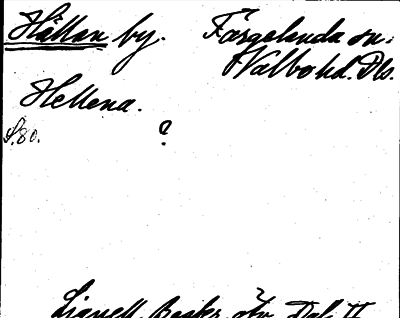 Hållan by. Färgelanda sn.
Valbo hd. Dls.
Hellena.
S. 80. ?
Lignell, Beskr. öfv. Dal. II